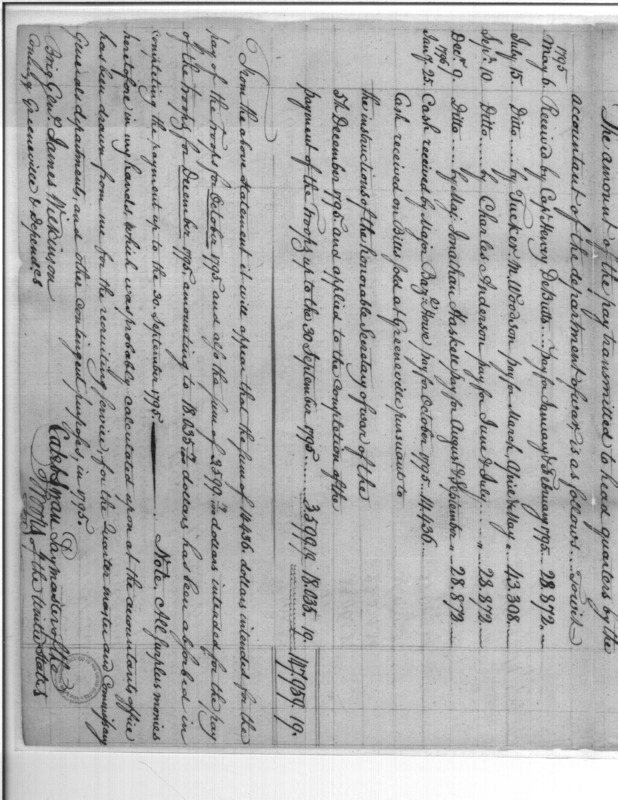 The amount of the pay transmitted to head quarters by the
accountant of the department of war, is as follows ... To wit
1795
May 6. Received by Capt. Henry DeButts ... pay for January & February 1795 .. 28.872. —
July 15. Ditto ..... by Tucker M. Woodson pay for March, April & May " .. 43.308. —
Sept. 10 Ditto ..... by Charles Anderson pay for June & July ... " .. 28.872. —
Decr. 9. Ditto ..... by Maj. Jonathan Haskell pay for August & September " .. 28.872 —
1796
Jany. 25. Cash received by Major Baz. Howe pay for October 1795 .. 14.436. ..
Cash received on Bills sold at Greeneville pursuant to
the instructions of the honorable Secretary of war of the
5th. December 1795 and applied to the completion of the
payment of the Troops up to the 30 September 1795 ........ 3.599.19. 18.035. 19.
147.959. 19.
From the above statement it will appear that the sum of 14436. dollars intended for the
pay of the troops for October 1795 and also the sum of 3599. 19/100 dollars intended for the pay
of the troops for December 1795 amounting to 18.035 19/100 dollars has been absorbed in
completing the payment up to the 30 September 1795. — Note. All surplus monies
heretofore in my hands, which was probably calculated upon at the accountants office
has been drawn from me for the recruiting service, for the Quarter master and Commissary
Generals departments, and other contingent purposes, in 1795.
Caleb Swan
Paymaster of the
Troops of the United States
Brig. Genl. James Wilkinson
Comdg. Greeneville & Dependcs